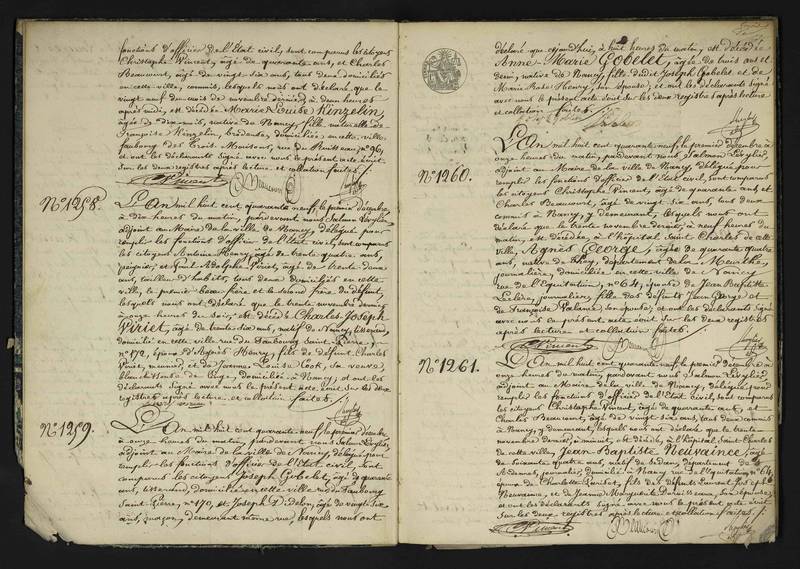 fonctions d'officier de l'Etat civil, sont comparus les citoyens
Christophe Vincent, âgé de quarante ans, et Charles
Beaucourt, âgé de vingt six ans, tous deux domiciliés
en cette ville, commis, lesquels nous ont déclaré que le
vingt neuf du mois de novembre dernier, à deux heures
après midi, est décédée Marie Louise Kinzelin,
âgée de dix mois, native de Nancy, fille naturelle de
Françoise Kinzelin, brodeuse, domiciliée en cette ville
faubourg des Trois Maisons, rue du Ruisseau, n° 96,
et ont les déclarants signé avec nous le présent acte écrit
sur les deux registres après lecture et collation faites.
N° 1258.
L'An mil huit cent quarante neuf, le premier décembre,
à dix heures du matin, pardevant nous Salmon
adjoint au Maire de la ville de Nancy, délégué pour
remplir les fonctions d'officier de l'Etat civil, sont comparus
les citoyens Antoine Henry, âgé de trente quatre ans,
et Adolphe Viriet, âgé de trente deux
ans, tailleur d'habits, tous deux domiciliés en cette
ville, le premier beau frère et le second frère du défunt,
lesquels nous ont déclaré que le trente novembre dernier,
à onze heures du soir, est décédé Charles Joseph
Viriet, âgé de trente six ans, natif de Nancy,
domicilié en cette ville rue du Faubourg Saint Pierre,
n° 172, époux d'Agnès Henry, fils de défunt Charles
Viriet, et de Jeanne Louise Cook, sa veuve,
domiciliée à Nancy, et ont les
déclarants signé avec nous le présent acte écrit sur les deux
registres après lecture et collation faites.
N° 1259.
L'An mil huit cent quarante neuf, le premier décembre
à onze heures du matin, pardevant nous Salmon
adjoint au Maire de la ville de Nancy, délégué pour
remplir les fonctions d'officier de l'Etat civil, sont
comparus les citoyens Joseph Gobelet, âgé de quarante
ans, tisserand, domicilié en cette ville rue du Faubourg
Saint Pierre, n° 172, et Joseph Didelon, âgé de vingt six
ans, maçon, demeurant même rue, lesquels nous ont
déclaré que cejourd'hui, à huit heures du matin, est décédée
Anne-Marie Gobelet, âgée de trois ans et
demi, native de Nancy, fille dudit Joseph Gobelet et de
Marie Rose Henry, son épouse, et ont les déclarants signé
avec nous le présent acte écrit sur les deux registres après lecture
et collation faites.
N° 1260.
L'An mil huit cent quarante neuf, le premier décembre à
onze heures du matin, pardevant nous Salmon
adjoint au Maire de la ville de Nancy, délégué pour
remplir les fonctions d'officier de l'Etat civil, sont comparus
les citoyens Christophe Vincent, âgé de quarante ans et
Charles Beaucourt, âgé de vingt six ans, tous deux
commis à Nancy, y demeurant, lesquels nous ont
déclaré que le trente novembre dernier, à neuf heures du
matin, est décédée à l'hôpital Saint Charles de cette
ville, Agnès George, âgée de quarante quatre
ans, native de département de la Meurthe,
journalière, domiciliée en cette ville de Nancy
rue de l'Equitation, n° 64, épouse de Jean Baptiste
journalier, fille des défunts Jean George et
de Françoise son épouse, et ont les déclarants signé
avec nous le présent acte écrit sur les deux registres
après lecture et collation faites.
N° 1261.
L'An mil huit cent quarante neuf, le premier décembre à
onze heures du matin, pardevant nous Salmon
adjoint au Maire de la ville de Nancy, délégué pour
remplir les fonctions d'officier de l'Etat civil, sont comparus
les citoyens Christophe Vincent, âgé de quarante ans, et
Charles Beaucourt, âgé de vingt six ans, tous deux commis
à Nancy, y demeurant, lesquels nous ont déclaré que le trente
novembre dernier, à minuit, est décédé, à l'hôpital Saint Charles
de cette ville, Jean Baptiste Neuvaince, âgé
de soixante quatre ans, natif de Sedan, département des
Ardennes, domicilié à Nancy, rue de l'Equitation n° 64,
époux de Charlotte fils des défunts Laurent Joseph
Neuvaince, et de Jeanne Marguerite son épouse,
et ont les déclarants signé avec nous le présent acte écrit
sur les deux registres après lecture et collation faites.